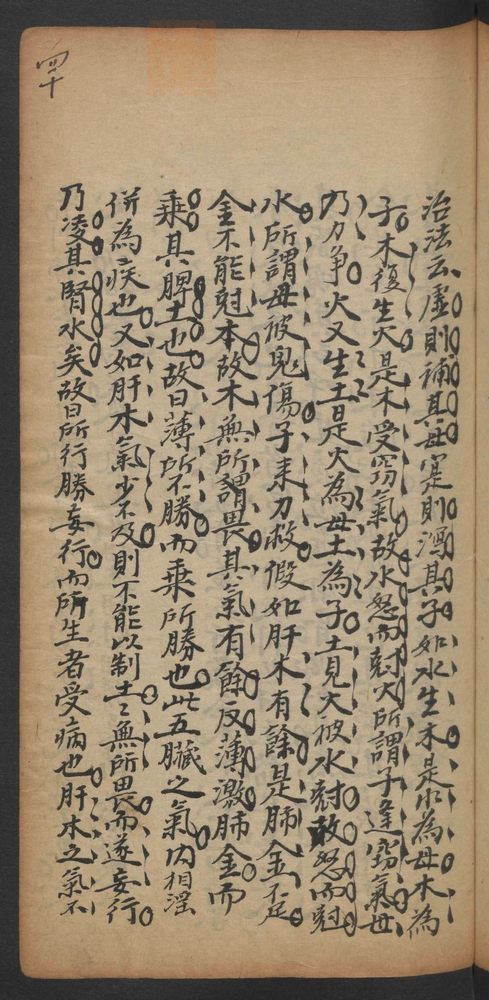 四十
治法云虛則補其母寔則瀉其子如水生木是水為母木為
子木復生火是木受窃氣故水怒而尅火所謂子逢窃氣母
乃力争火又生土是火為母土為子土見火被水尅故怒而尅
水所謂母被鬼傷子來力救假如肝木有餘是肺金不足
金不能尅本故木無所謂畏其氣有餘反薄激肺金而
乘其脾土也故曰薄所不勝而乘所勝也此五臟之氣内相淫
併為疾也又如肝木氣少不及則不能以制土〻無所畏而遂妄行
乃凌其腎水矣故曰所行勝妄行而所生者受病也肝木之氣不